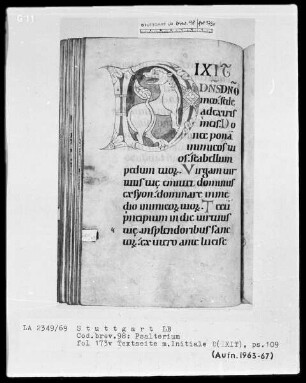 IXIT
DN̅S DN̅O
meo. sede
a dextris
meis. Do
nec ponã
inimicos tu
os. scabellum
pedum tuoꝝ. Virgam uir
tutis tuę emittet dominus
ex syon. dominare in me
dio inimicoꝝ tuoꝝ. Tecũ
principium in die uirtutis
tuę. in splendoribus sanc
toꝝ. ex utero ante lucife
LA 2349/69 Stuttgart LB
Cod.brev.98: Psalterium
fol 173v Textseite m.Initiale D(IXIT), ps.109
(Aufn.1963-67)